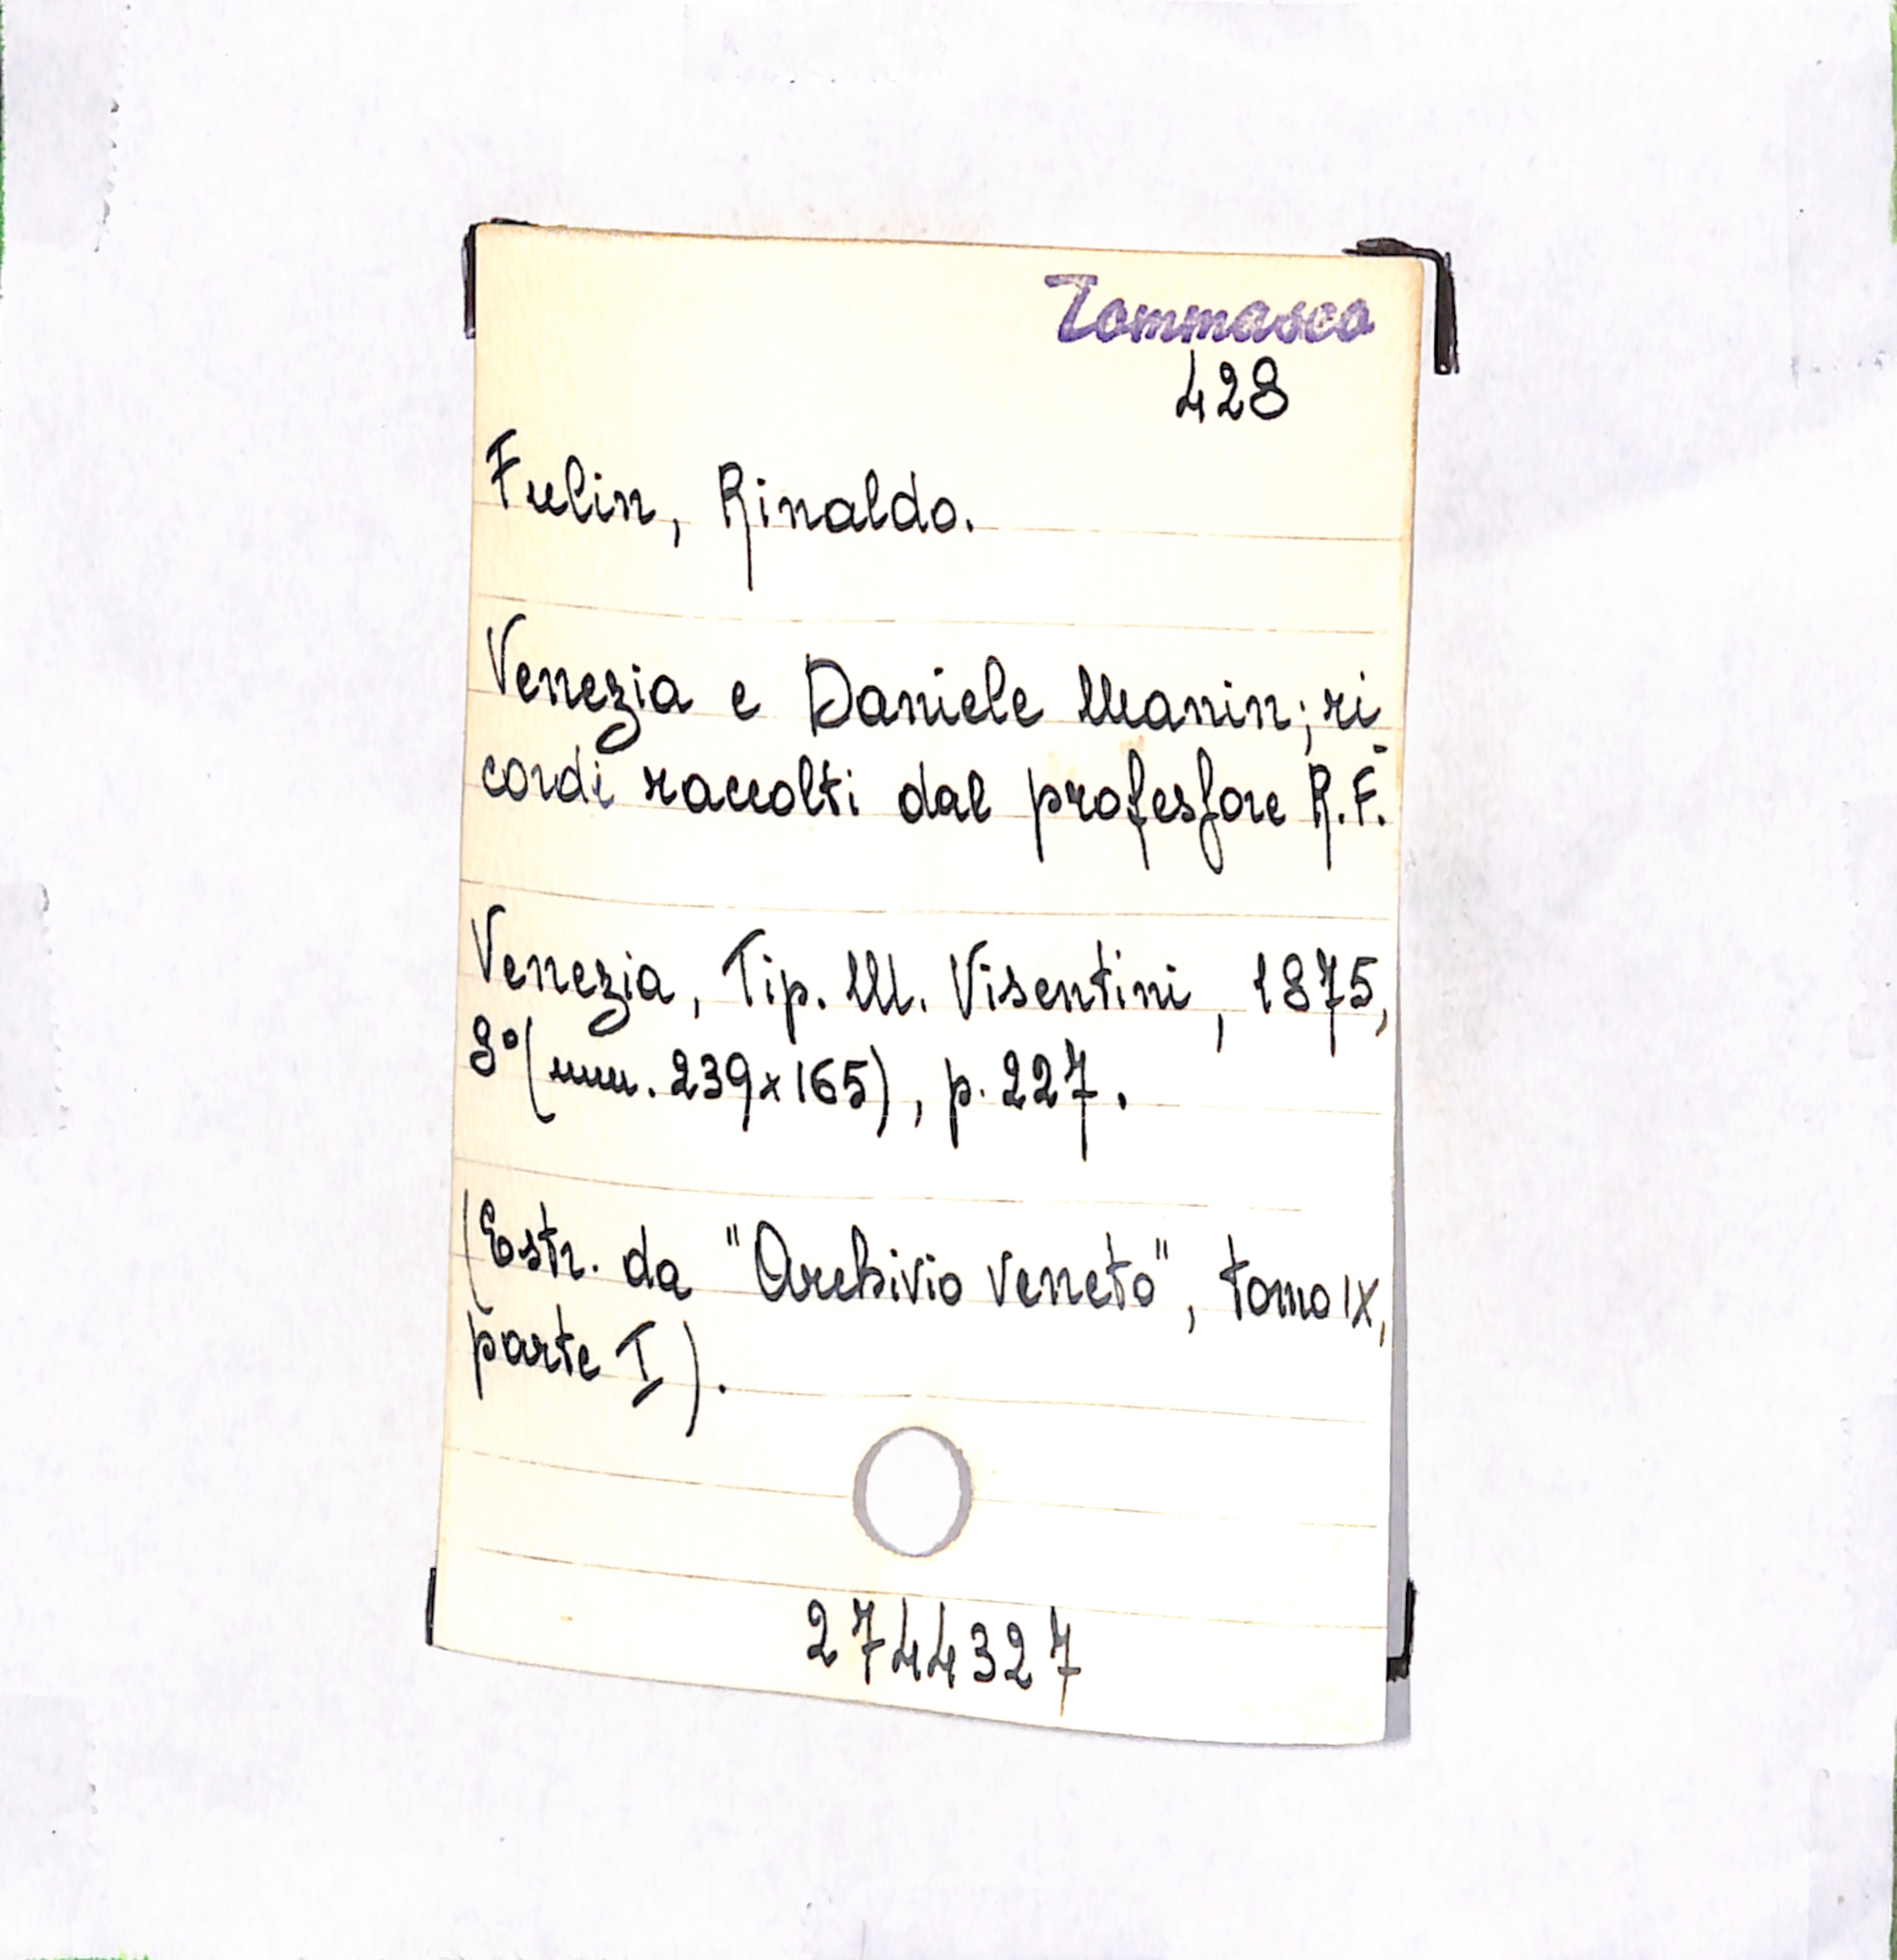 Tommaseo
428
Fulin, Rinaldo.
Venezia e Daniele Manin; ri-
cordi raccolti dal professore R.F.
Venezia, Tip. M. Visentini, 1875,
8° (mm. 239x165), p. 227.
(Estr. da "Archivio veneto", tomo IX,
parte I).
2744327